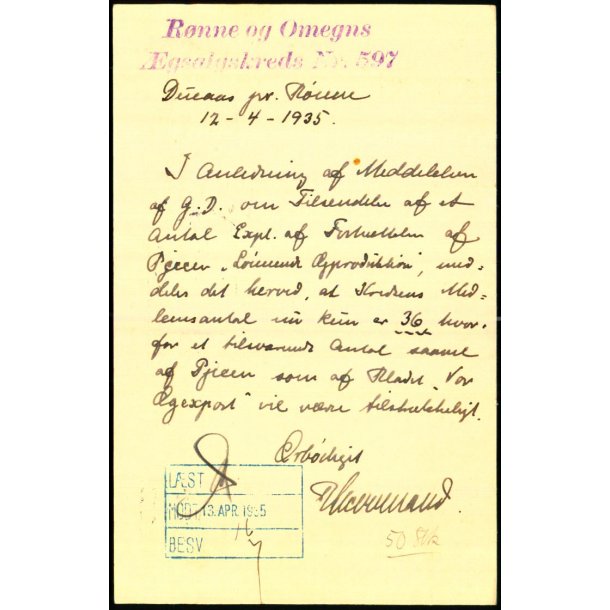 Rønne og Omegns
Ægsalgskreds Nr. 597
pr. Rønne
12-4-1935.
I Anledning af Meddelelsen
af G.D. om Tilsendelse af et
Antal Expl. af Fortsættelsen af
Pjecen „Lønnende Ægproduktion", med-
deles det herved, at Kredsens Med-
lemsantal nu kun er 36 hvor-
for et tilsvarende Antal saavel
af Pjecen som af Bladet „Vor
Ægexport" vil være tilstrækkeligt.
Ærbødigst
LÆST
MODT 13. APR. 1935
BESV
50 Stk